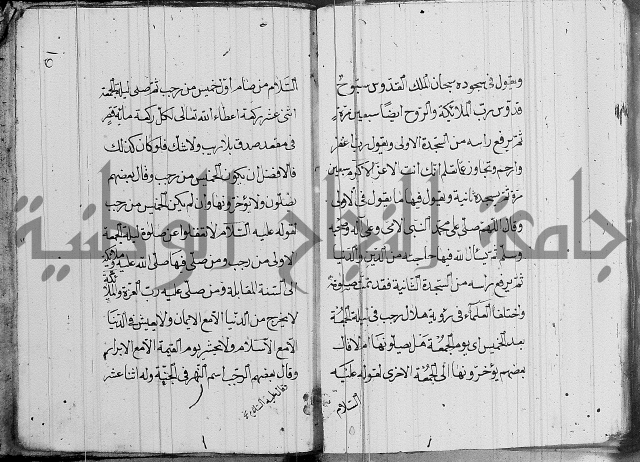 ويقول في سجوده سبحان الملك القدوس سبوح
قدوس رب الملائكة والروح ايضا سبعين مرة
ثم يرفع راسه من السجدة الاولى ويقول رب اغفر
وارحم وتجاوز عما تعلم انك انت الاعز الاكرم سبعين
مرة ثم يسجد ثانية ويقول فيها ما يقول في الاولى
وقال اللهم صلي على محمد النبي الامي وعلى اله وصحبه
وسلم ثم يسال الله فيها حاجته من الدين والدنيا
ثم يرفع راسه من السجدة الثانية فقد تمت صلوته
واختلف العلماء في رؤية هلال رجب في ليلة الجمعة
بعد الخميس اي يوم الجمعة هل يصلونها ام لا قال
بعضهم يؤخرونها الى الجمعة الاخرى لقوله عليه
السلام
السلام من صام اول خميس من رجب ثم صلى ليلة الجمعة
اثنى عشر ركعة اعطاه الله تعالى لكل ركعة مائة
في مقعد صدق بلا ريب ولا شك فلو كان كذلك
فالافضل ان يكون الخميس من رجب وقال بعضهم
يصلون ولا يؤخرونها وان لم يكن الخميس من رجب
لقوله عليه السلام لا تغفلوا عن صلوة ليلة الجمعة
الاولى من رجب ومن صلى فيها صلى الله عليه وملائكته
الى السنة المقابلة ومن صلى عليه رب العزة والملائكة
لا يخرج من الدنيا الا مع الايمان ولا يعيش في الدنيا
الا مع الاسلام ولا يحشر يوم القيمة الا مع الابرار
وقال بعضهم الرجب اسم النهر في الجنة وله اثنا عشر
جامعة النجاح الوطنية